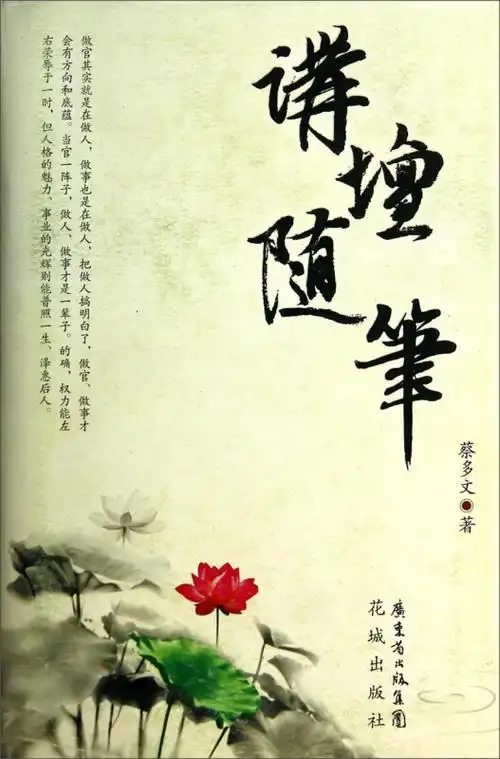 講壇隨筆
做官其实就是在做人，做事也是在做人，把做人搞明白了，做官、做事才
会有方向和底蕴。当官一阵子，做人、做事才是一辈子。的确，权力能左
右荣辱于一时，但人格的魅力、事业的光辉则能普照一生、泽惠后人。
蔡多文 著
廣東省出版集團
花城出版社